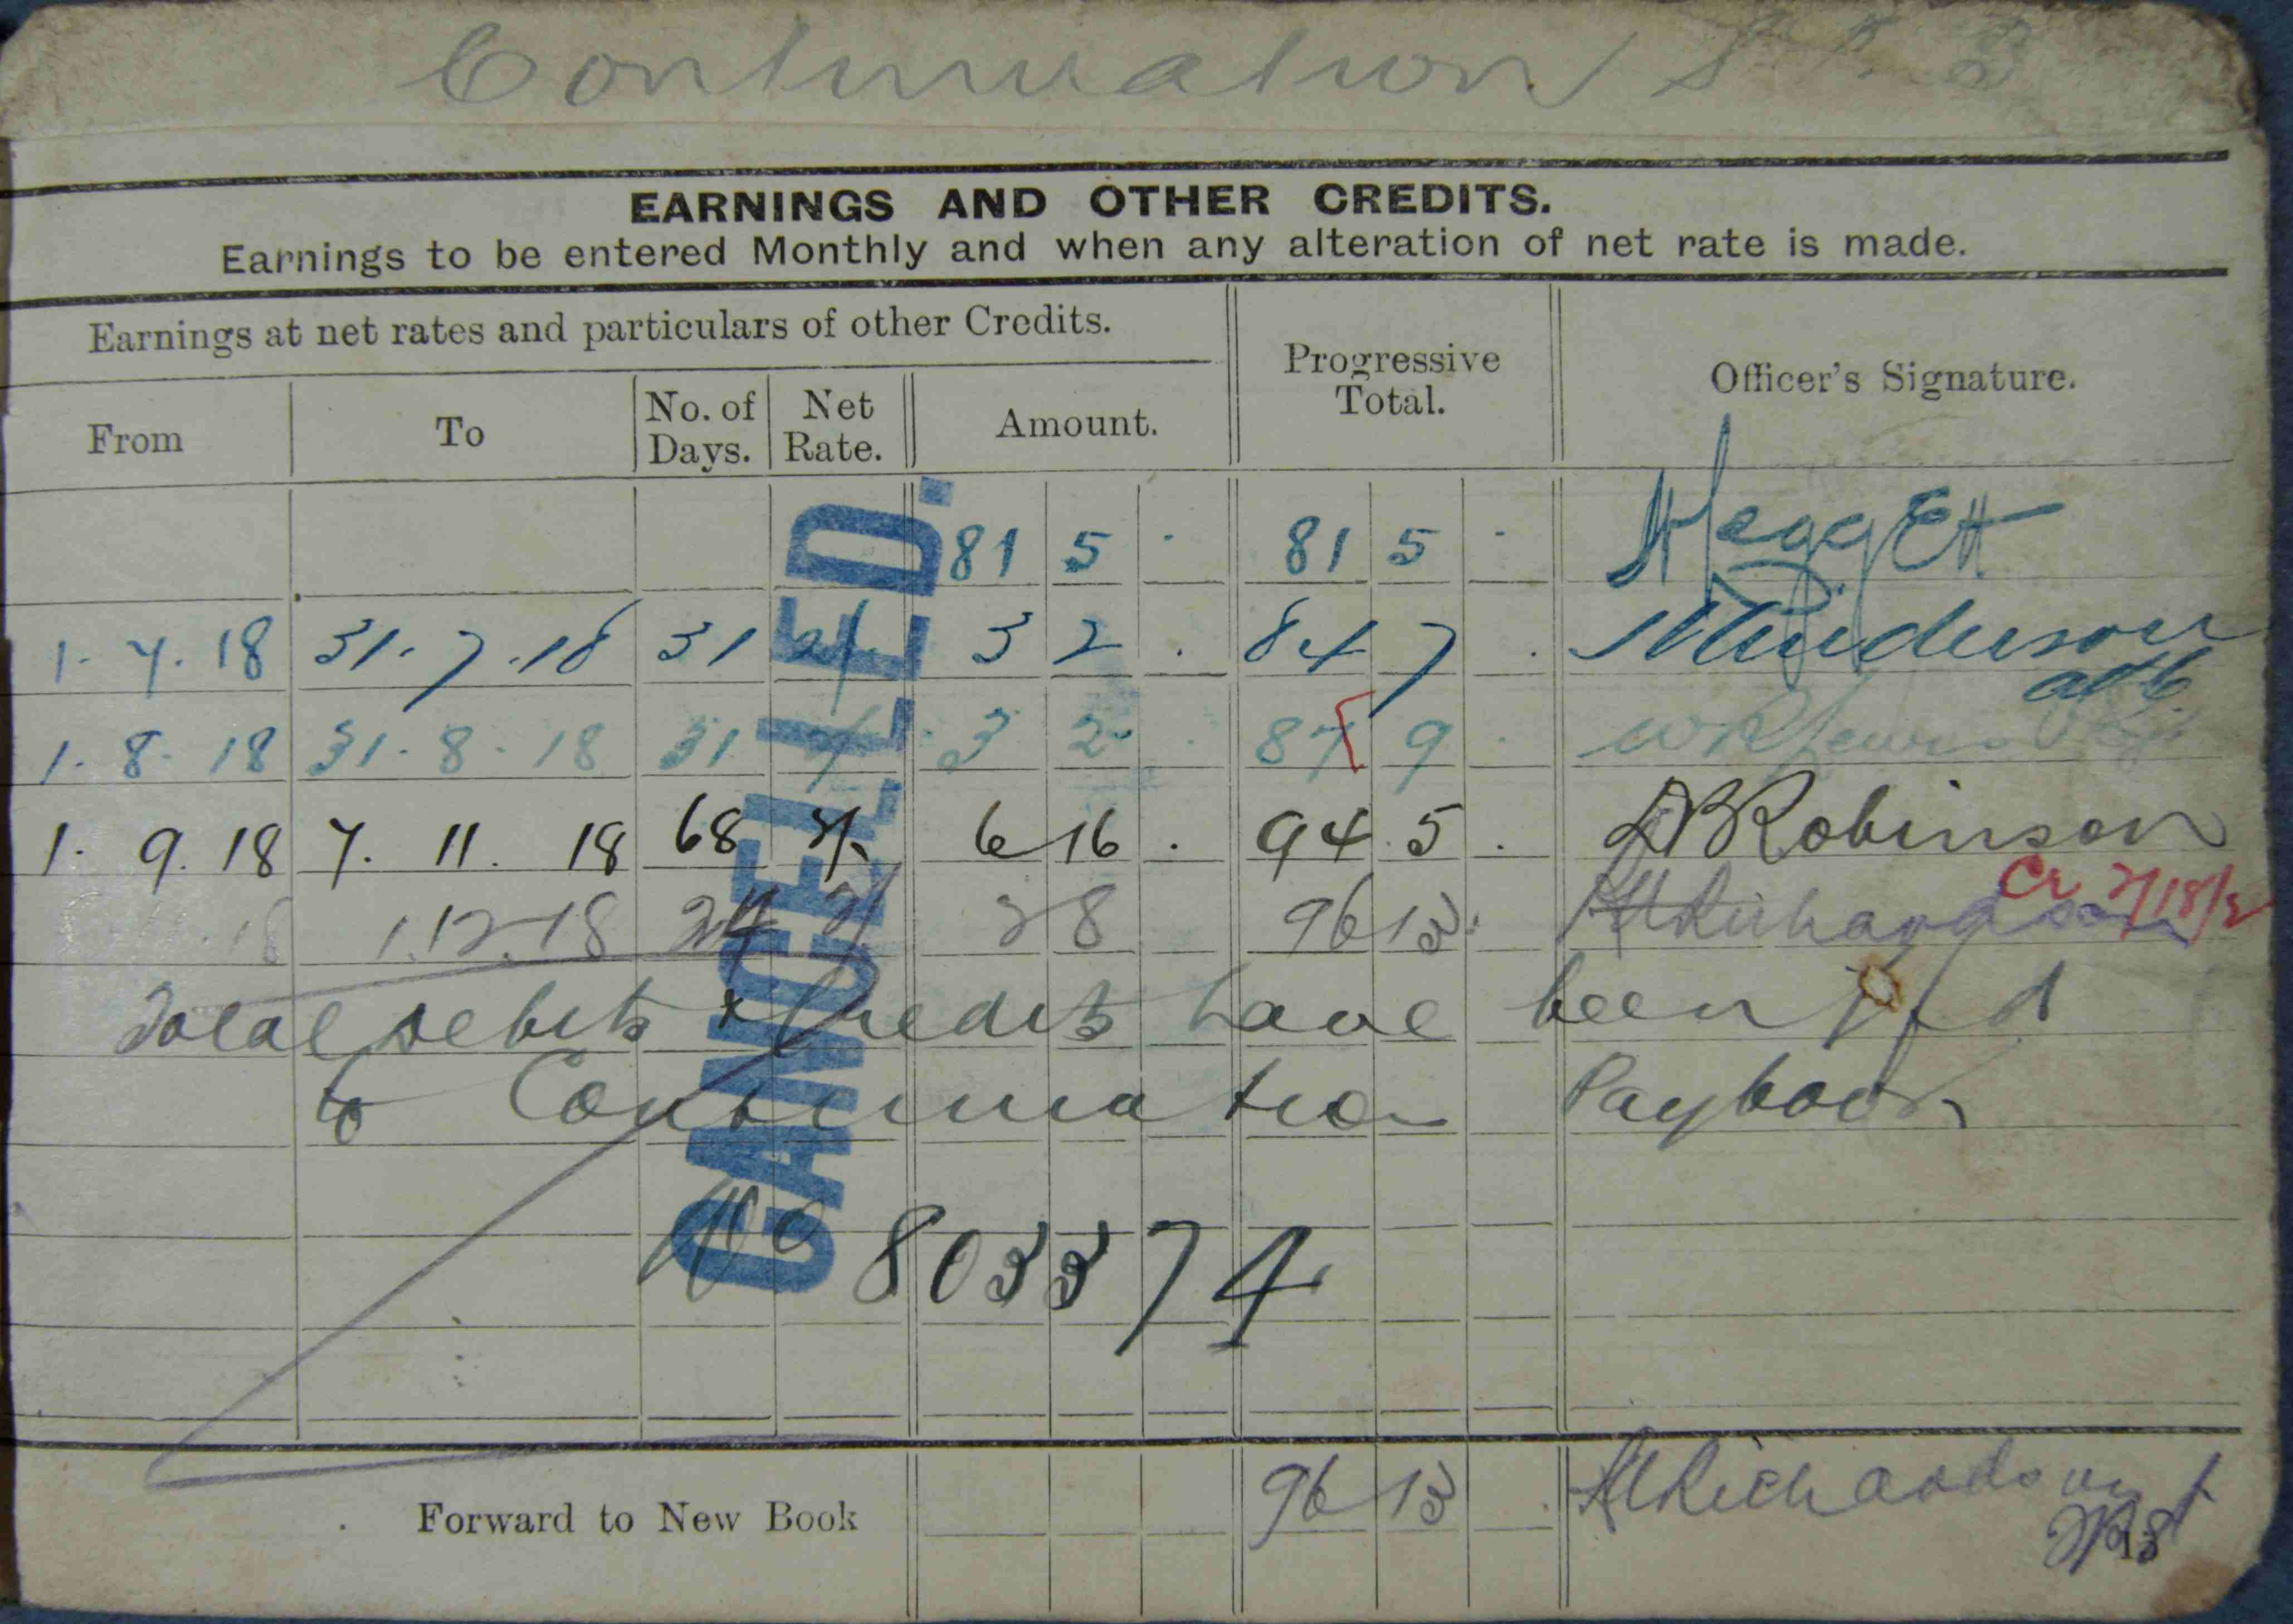 Continuation
EARNINGS AND OTHER CREDITS.
Earnings to be entered Monthly and when any alteration of net rate is made.
Earnings at net rates and particulars of other Credits.
Progressive Total.
Officer's Signature.
From To No. of Days. Net Rate. Amount.
81 5 . 81 5 -
1. 7. 18 31. 7. 18 31 2/- 3 2 . 84 7 .
1. 8. 18 31. 8. 18 31 2/- 3 2 . 87 9 .
1. 9. 18 7. 11. 18 68 2/- 6 16 . 94 5 . Robinson
18 1.12.18 24 2/- 2 8 96 13 . Richardson
Total debits & Credits have been
to Continuation Paybook
CANCELLED.
No 803374
Forward to New Book 96 13 . Richardson